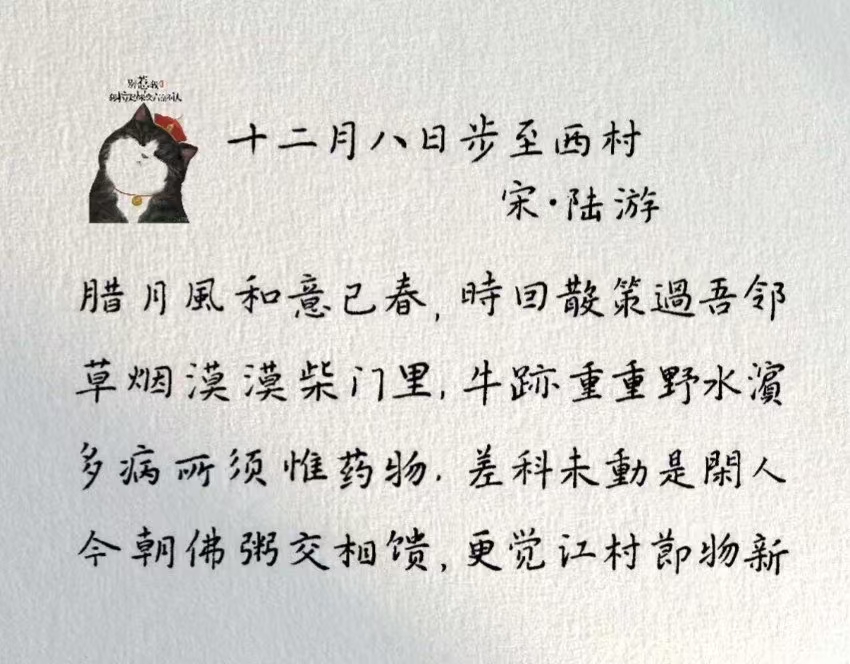 别惹我
十二月八日步至西村
宋·陆游
腊月風和意已春,時回散策過吾邻
草烟漠漠柴门里,牛跡重重野水濱
多病所须惟药物.差科未動是閑人
今朝佛粥交相馈,更觉江村節物新